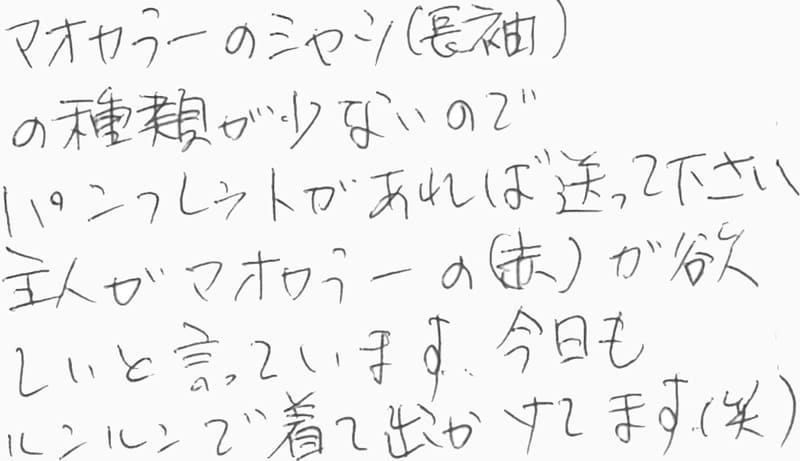 マオカラーのシャツ(長袖)
の種類が少ないので
パンフレットがあれば送って下さい
主人がマオカラーの(赤)が欲
しいと言っています。今日も
ルンルンで着て出かけてます。(笑)